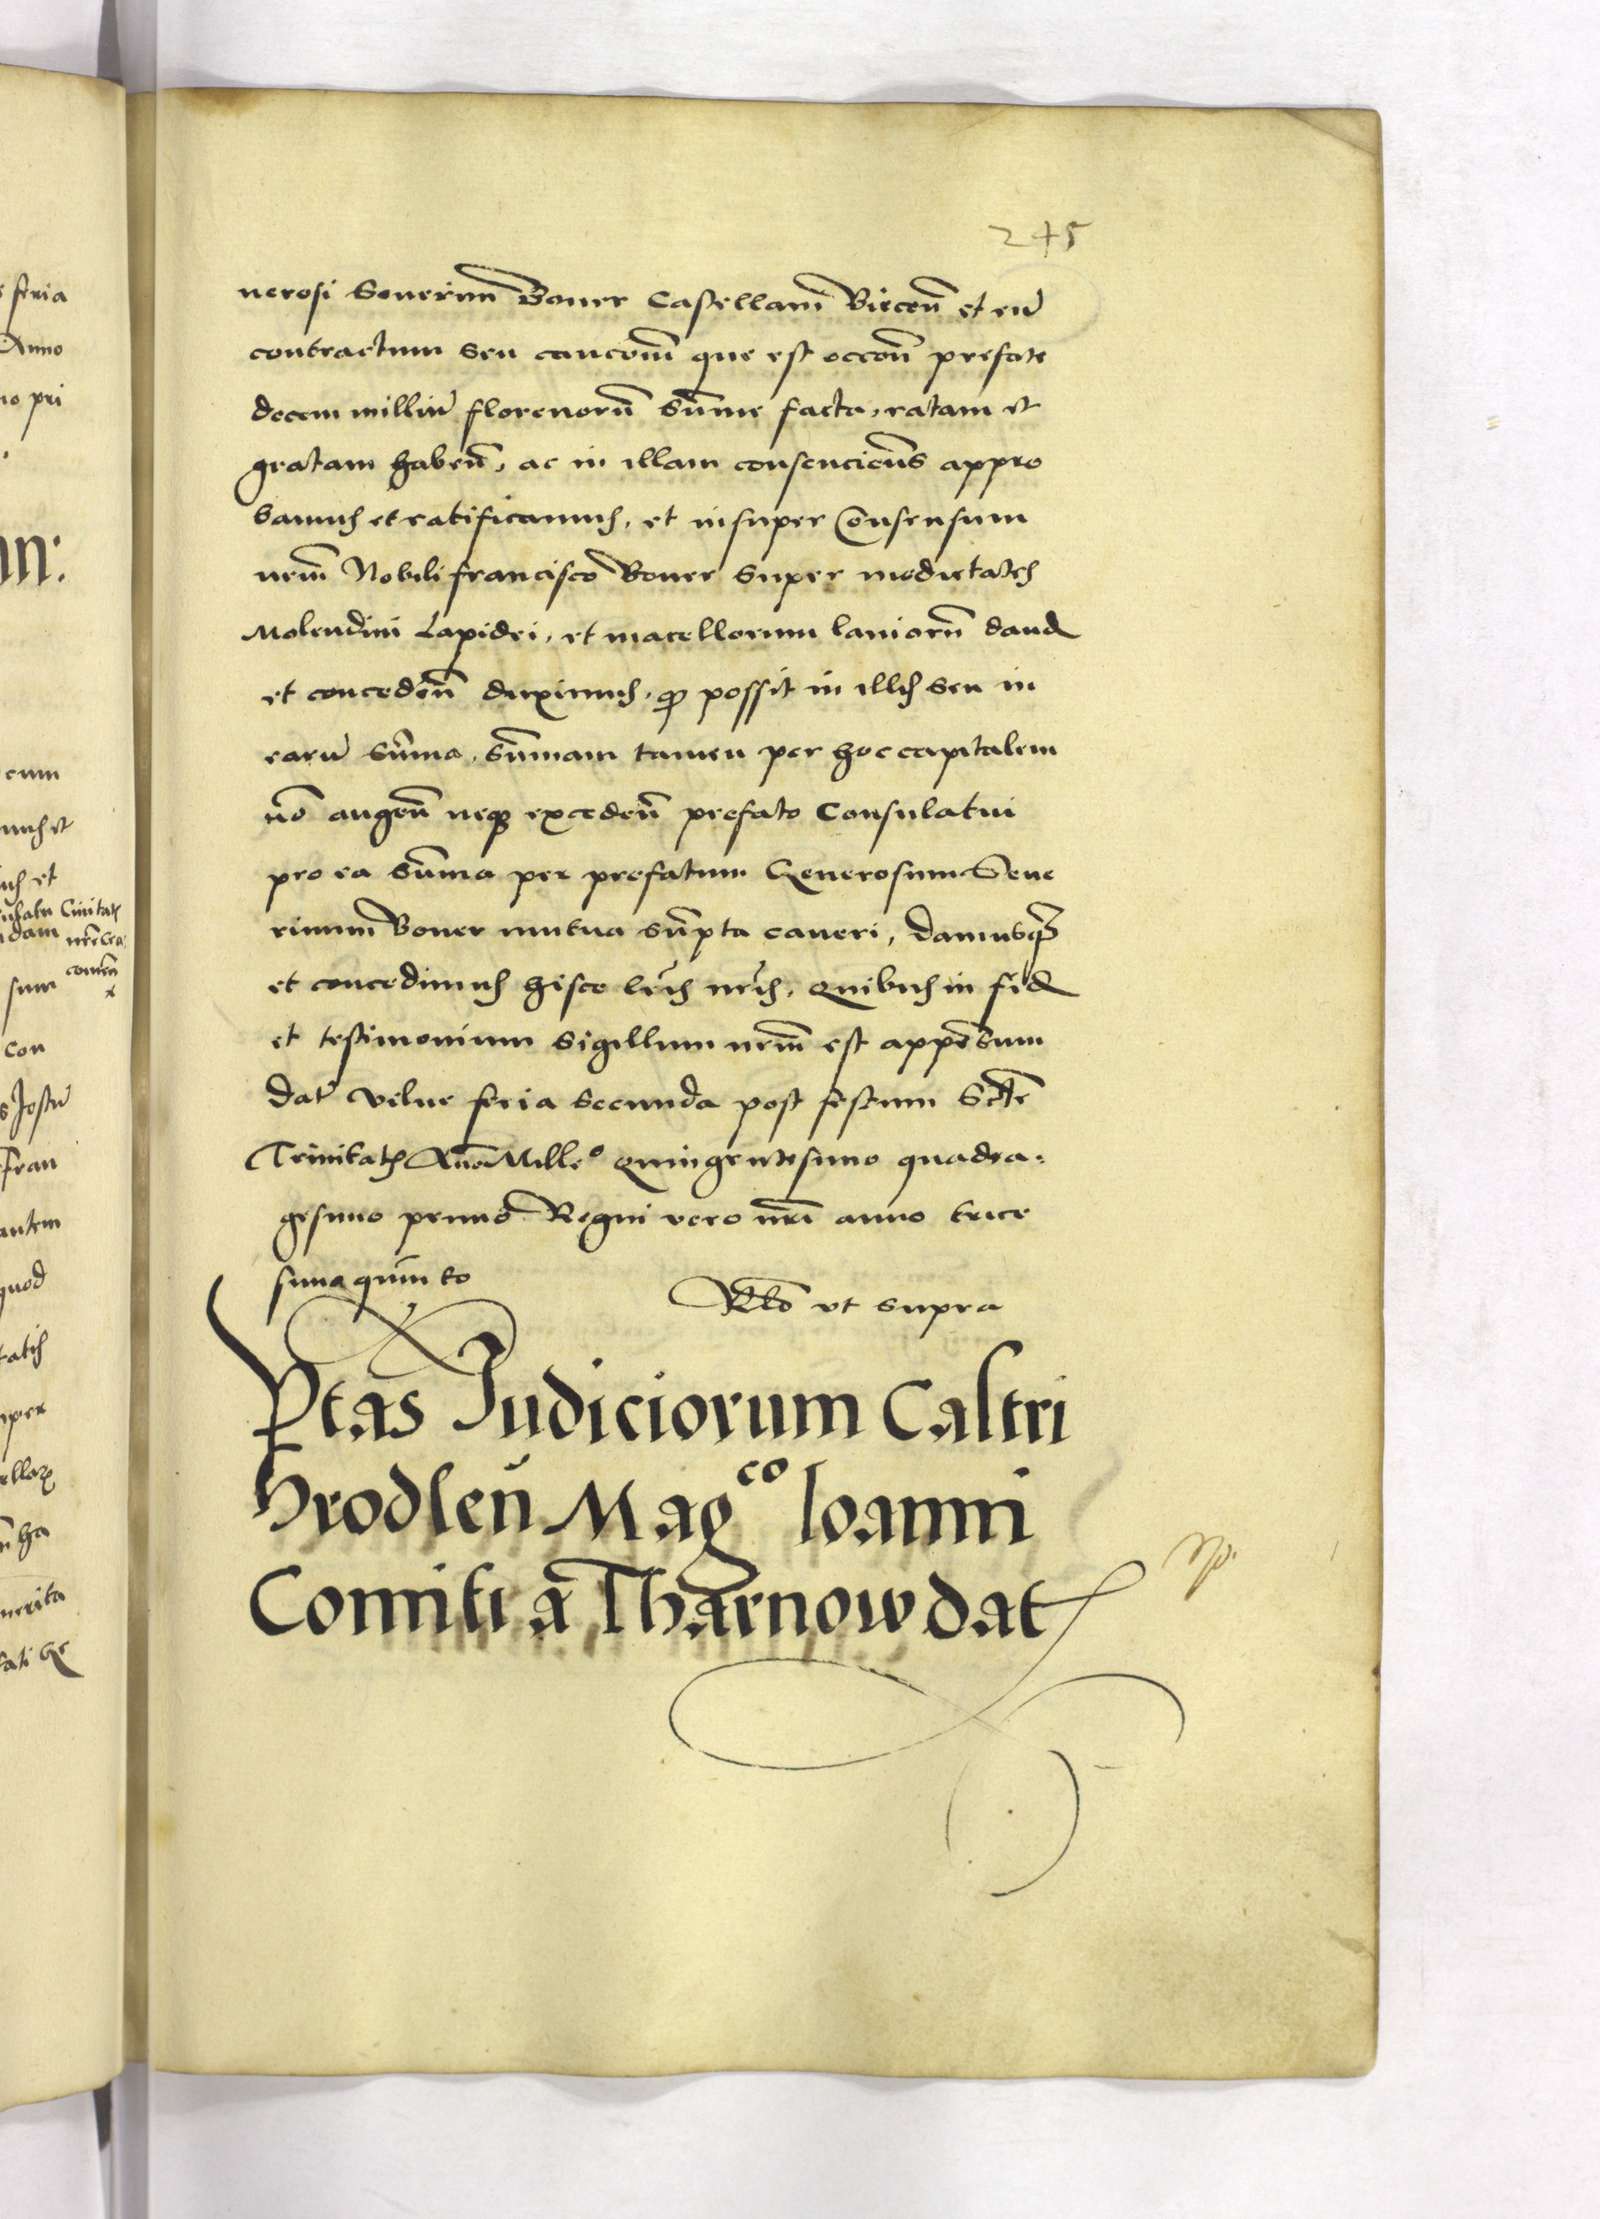 245
nerosi Severini Boner Castellani Biecen̄ et eiū
contractum seu caucōm̄ que est occoñ prefate
decem milliū florenorū sūme facta, ratam et
gratam habeñ, ac in illam consencieñs appro
bamus et ratificamus, et insuper Consensum
nrm̄ Nobili francisco Boner super medietates
Molendini Lapidei, et macellorum laniorū dand
et concedeñ duximus, qȝ possit in illis seu in
earū sūma, sūmam tamen per hoc capitalem
nō augeñ neqȝ excedeñ prefato Consulatui
pro ea sūma per prefatum Generosum Seve
rinum Boner mutua sūpta caveri, damusqȝ
et concedimus hisce lr̄is nr̄is, quibus in fid
et testimonium Sigillum nrm̄ est appēsum
dat̄ vilne feria secunda post festum Sctē
Trinitatis Año Mille⁰ quingentesimo quadra-
gesimo primo Regni vero nr̄i anno trice
simo quinto
Rl̄o ut supra
Ptas Judiciorum Castri
Hrodleñ Magco Ioanni
Comiti a Tharnow dat
s feria
Anno
no pri
nn:
cum
mus et
us et
Civitatis
sum
con
fran
autem
quod
tatis
uper
ha
merita